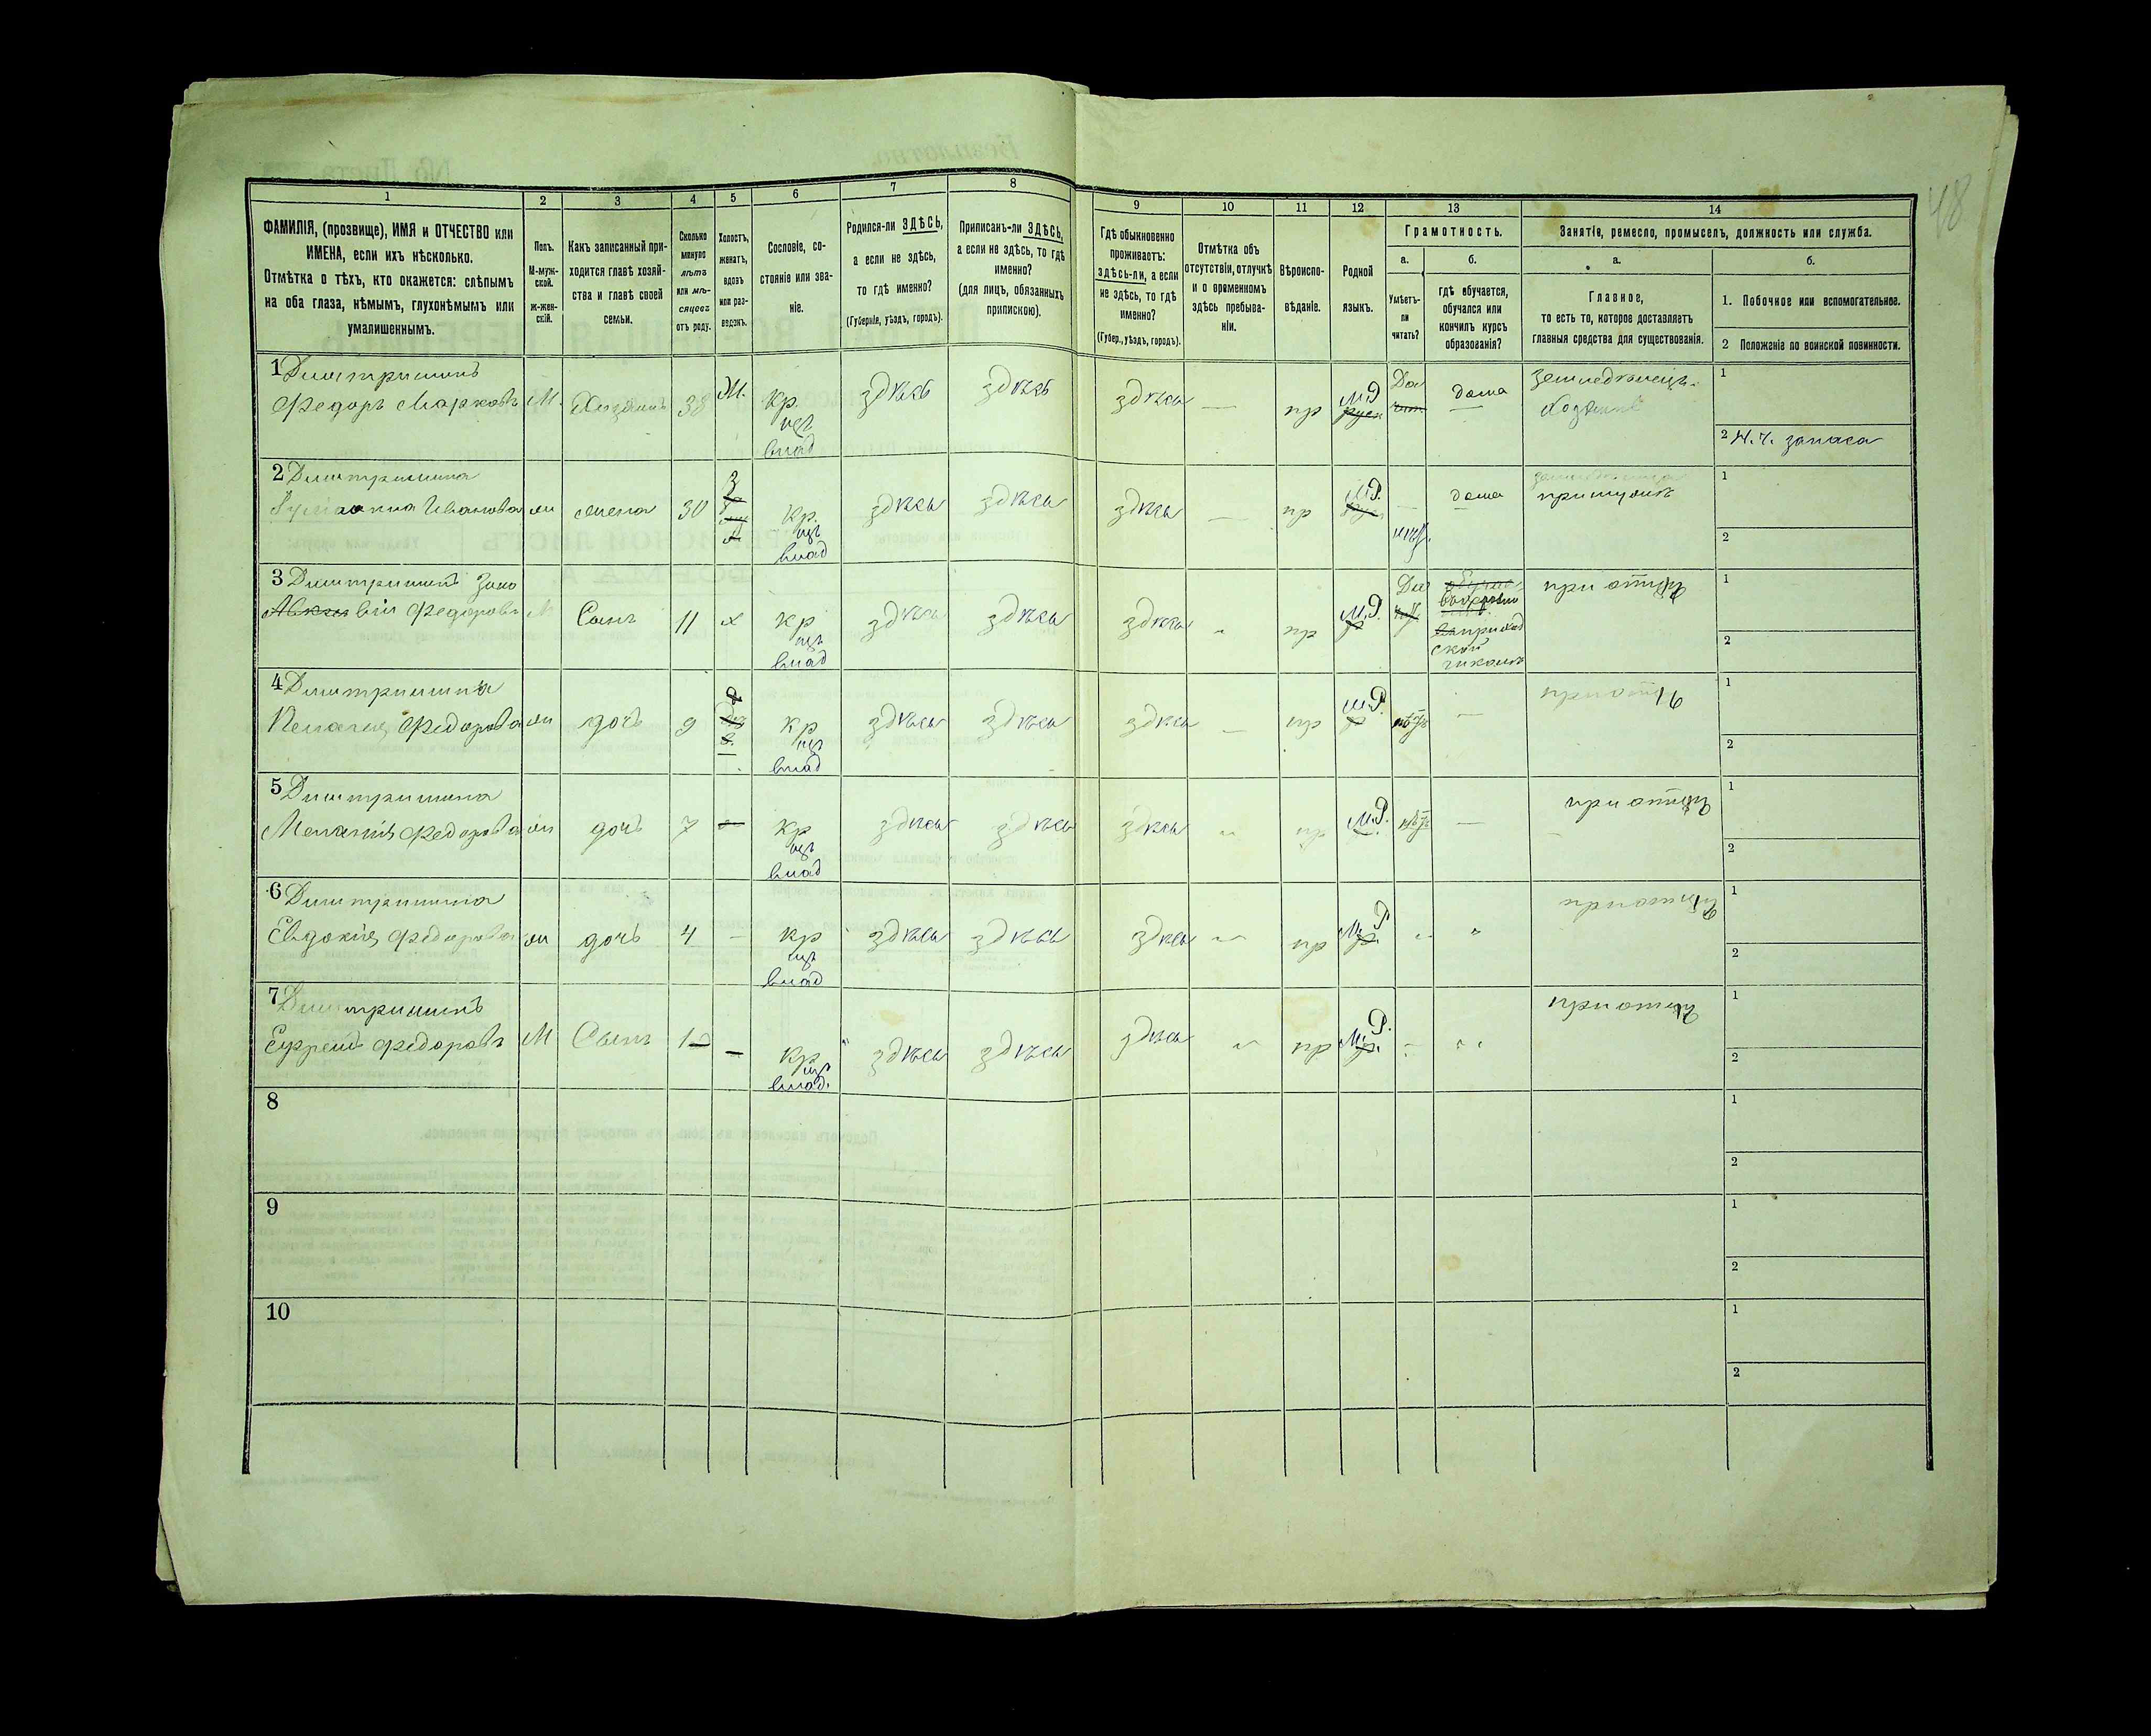 48
1
2
3
4
5
6
7
8
9
10
11
12
13
14
ФАМИЛІЯ, (прозвище), ИМЯ и ОТЧЕСТВО или
ИМЕНА, если ихъ нѣсколько.
Отмѣтка о тѣхъ, кто окажется: слѣпымъ
на оба глаза, нѣмымъ, глухонѣмымъ или
умалишеннымъ.
Полъ.
М-муж-
ской.
ж-жен-
скій.
Какъ записанный при-
ходится главѣ хозяй-
ства и главѣ своей
семьи.
Сколько
минуло
лѣтъ
или мѣ-
сяцевъ
отъ роду.
Холостъ,
женатъ,
вдовъ
или раз-
веденъ.
Сословіе, со-
стояніе или зва-
ніе.
Родился-ли ЗДѢСЬ,
а если не здѣсь,
то гдѣ именно?
(Губернія, уѣздъ, городъ).
Приписанъ-ли ЗДѢСЬ,
а если не здѣсь, то гдѣ
именно?
(для лицъ, обязанныхъ
припискою).
Гдѣ обыкновенно
проживаетъ:
здѣсь-ли, а если
не здѣсь, то гдѣ
именно?
(Губер., уѣздъ, городъ).
Отмѣтка объ
отсутствіи, отлучкѣ
и о временномъ
здѣсь пребыва-
ніи.
Вѣроиспо-
вѣданіе.
Родной
языкъ.
Грамотность.
а.
Умѣетъ-
ли
читать?
б.
гдѣ обучается,
обучался или
кончилъ курсъ
образованія?
Занятіе, ремесло, промыселъ, должность или служба.
а.
Главное,
то есть то, которое доставляетъ
главныя средства для существованія.
б.
1. Побочное или вспомогательное.
2 Положеніе по воинской повинности.
1 Дмитришинъ
Федоръ Марковъ М. Хозяинъ 38 Ж. Кр. здѣсь здѣсь здѣсь — пр М.Р. Да дома земледѣлецъ
изъ
влад
хозяинъ
1
2 Н. Ч. запаса
2 Дмитришина
Иванова ж жена 30 З Кр. здѣсь здѣсь здѣсь — пр М.Р. дома при мужѣ
изъ
влад
1
2
3 Дмитришинъ
Федоровъ М Сынъ 11 х кр здѣсь здѣсь здѣсь „ пр М.Р. Да при отцѣ
изъ
влад
приход
ской
школѣ
1
2
4 Дмитришина
Пелагія Федорова ж дочь 9 кр здѣсь здѣсь здѣсь — пр М.Р. — при отцѣ
изъ
влад
1
2
5 Дмитришина
Меланія Федорова ж дочь 7 — кр здѣсь здѣсь здѣсь „ пр М.Р. — при отцѣ
изъ
влад
1
2
6 Дмитришина
Евдокія Федорова ж дочь 4 — кр здѣсь здѣсь здѣсь „ пр М.Р. „ „ при отцѣ
изъ
влад
1
2
7 Дмитришинъ
Ефремъ Федоровъ М Сынъ 1 — кр здѣсь здѣсь здѣсь „ пр М.Р. „ „ при отцѣ
изъ
влад.
1
2
8
1
2
9
1
2
10
1
2